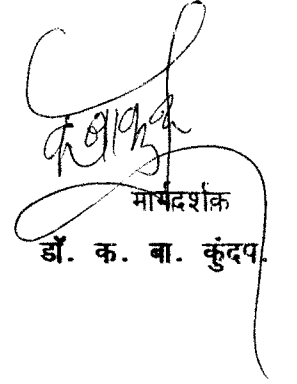 मार्गदर्शक
डॉ. क. बा. कुंदप.